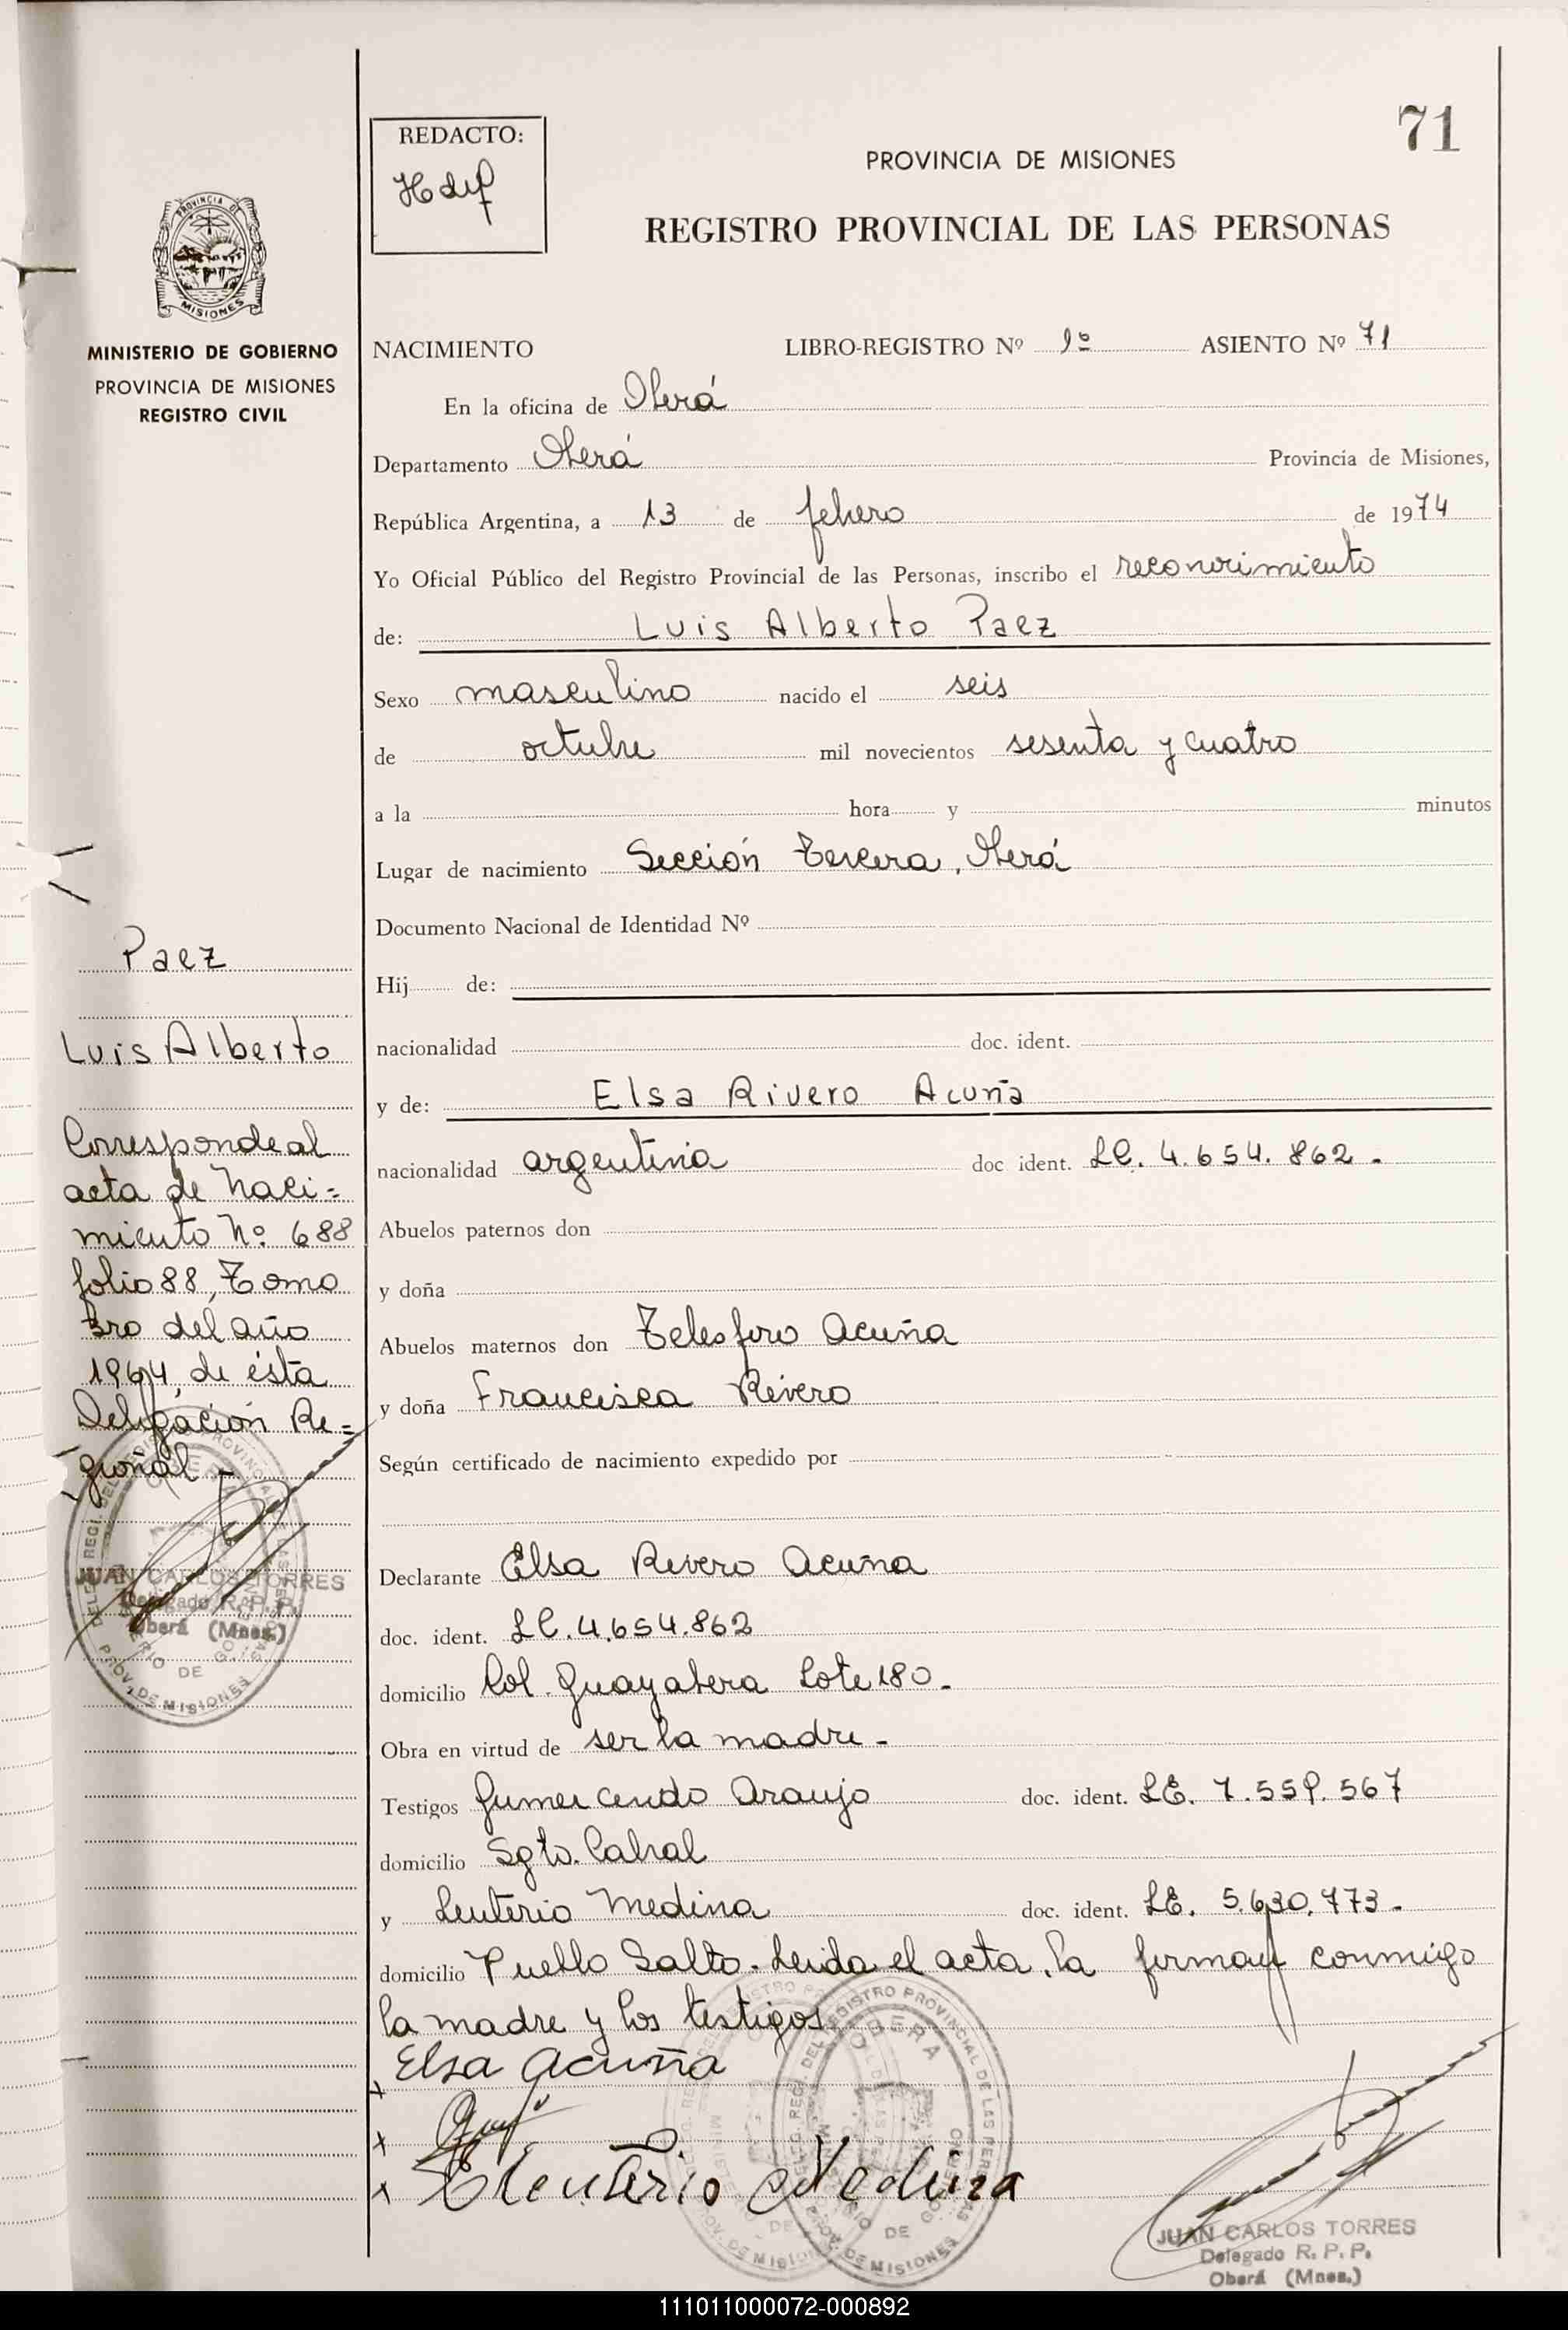 71
REDACTO:
PROVINCIA DE MISIONES
REGISTRO PROVINCIAL DE LAS PERSONAS
PROVINCIA DE
MISIONES
MINISTERIO DE GOBIERNO
PROVINCIA DE MISIONES
REGISTRO CIVIL
NACIMIENTO LIBRO-REGISTRO Nº 1º ASIENTO Nº 71
En la oficina de Oberá
Departamento Oberá Provincia de Misiones,
República Argentina, a 13 de febrero de 1974
Yo Oficial Público del Registro Provincial de las Personas, inscribo el reconocimiento
de: Luis Alberto Paez
Sexo masculino nacido el seis
de octubre mil novecientos sesenta y cuatro
a la hora y minutos
Lugar de nacimiento Sección Tercera, Oberá
Documento Nacional de Identidad Nº
Hij de:
nacionalidad doc. ident.
y de: Elsa Rivero Acuña
nacionalidad argentina doc ident. LC. 4.654.862.-
Abuelos paternos don
y doña
Abuelos maternos don Telesforo Acuña
y doña Francisca Rivero
Según certificado de nacimiento expedido por
Declarante Elsa Rivero Acuña
doc. ident. LC. 4.654.862
domicilio Col. Guayabera Lote 180.-
Obra en virtud de ser la madre.-
Testigos Gumercindo Araujo doc. ident. LE. 7.559.567
domicilio Sgto. Cabral
y Leuterio Medina doc. ident. LE. 5.630.773.-
domicilio Pueblo Salto. Leida el acta, la firman conmigo
la madre y los testigos
x Elsa Acuña
x
x Eleuterio Medina
Paez
Luis Alberto
Corresponde al
acta de Naci=
miento Nº. 688
folio 88, Tomo
3ro del año
1964, de ésta
Delegación Re=
gional.-
JUAN CARLOS TORRES
Delegado R. P. P.
Oberá (Mnes.)
JUAN CARLOS TORRES
Delegado R. P. P.
Oberá (Mnes.)
111011000072-000892